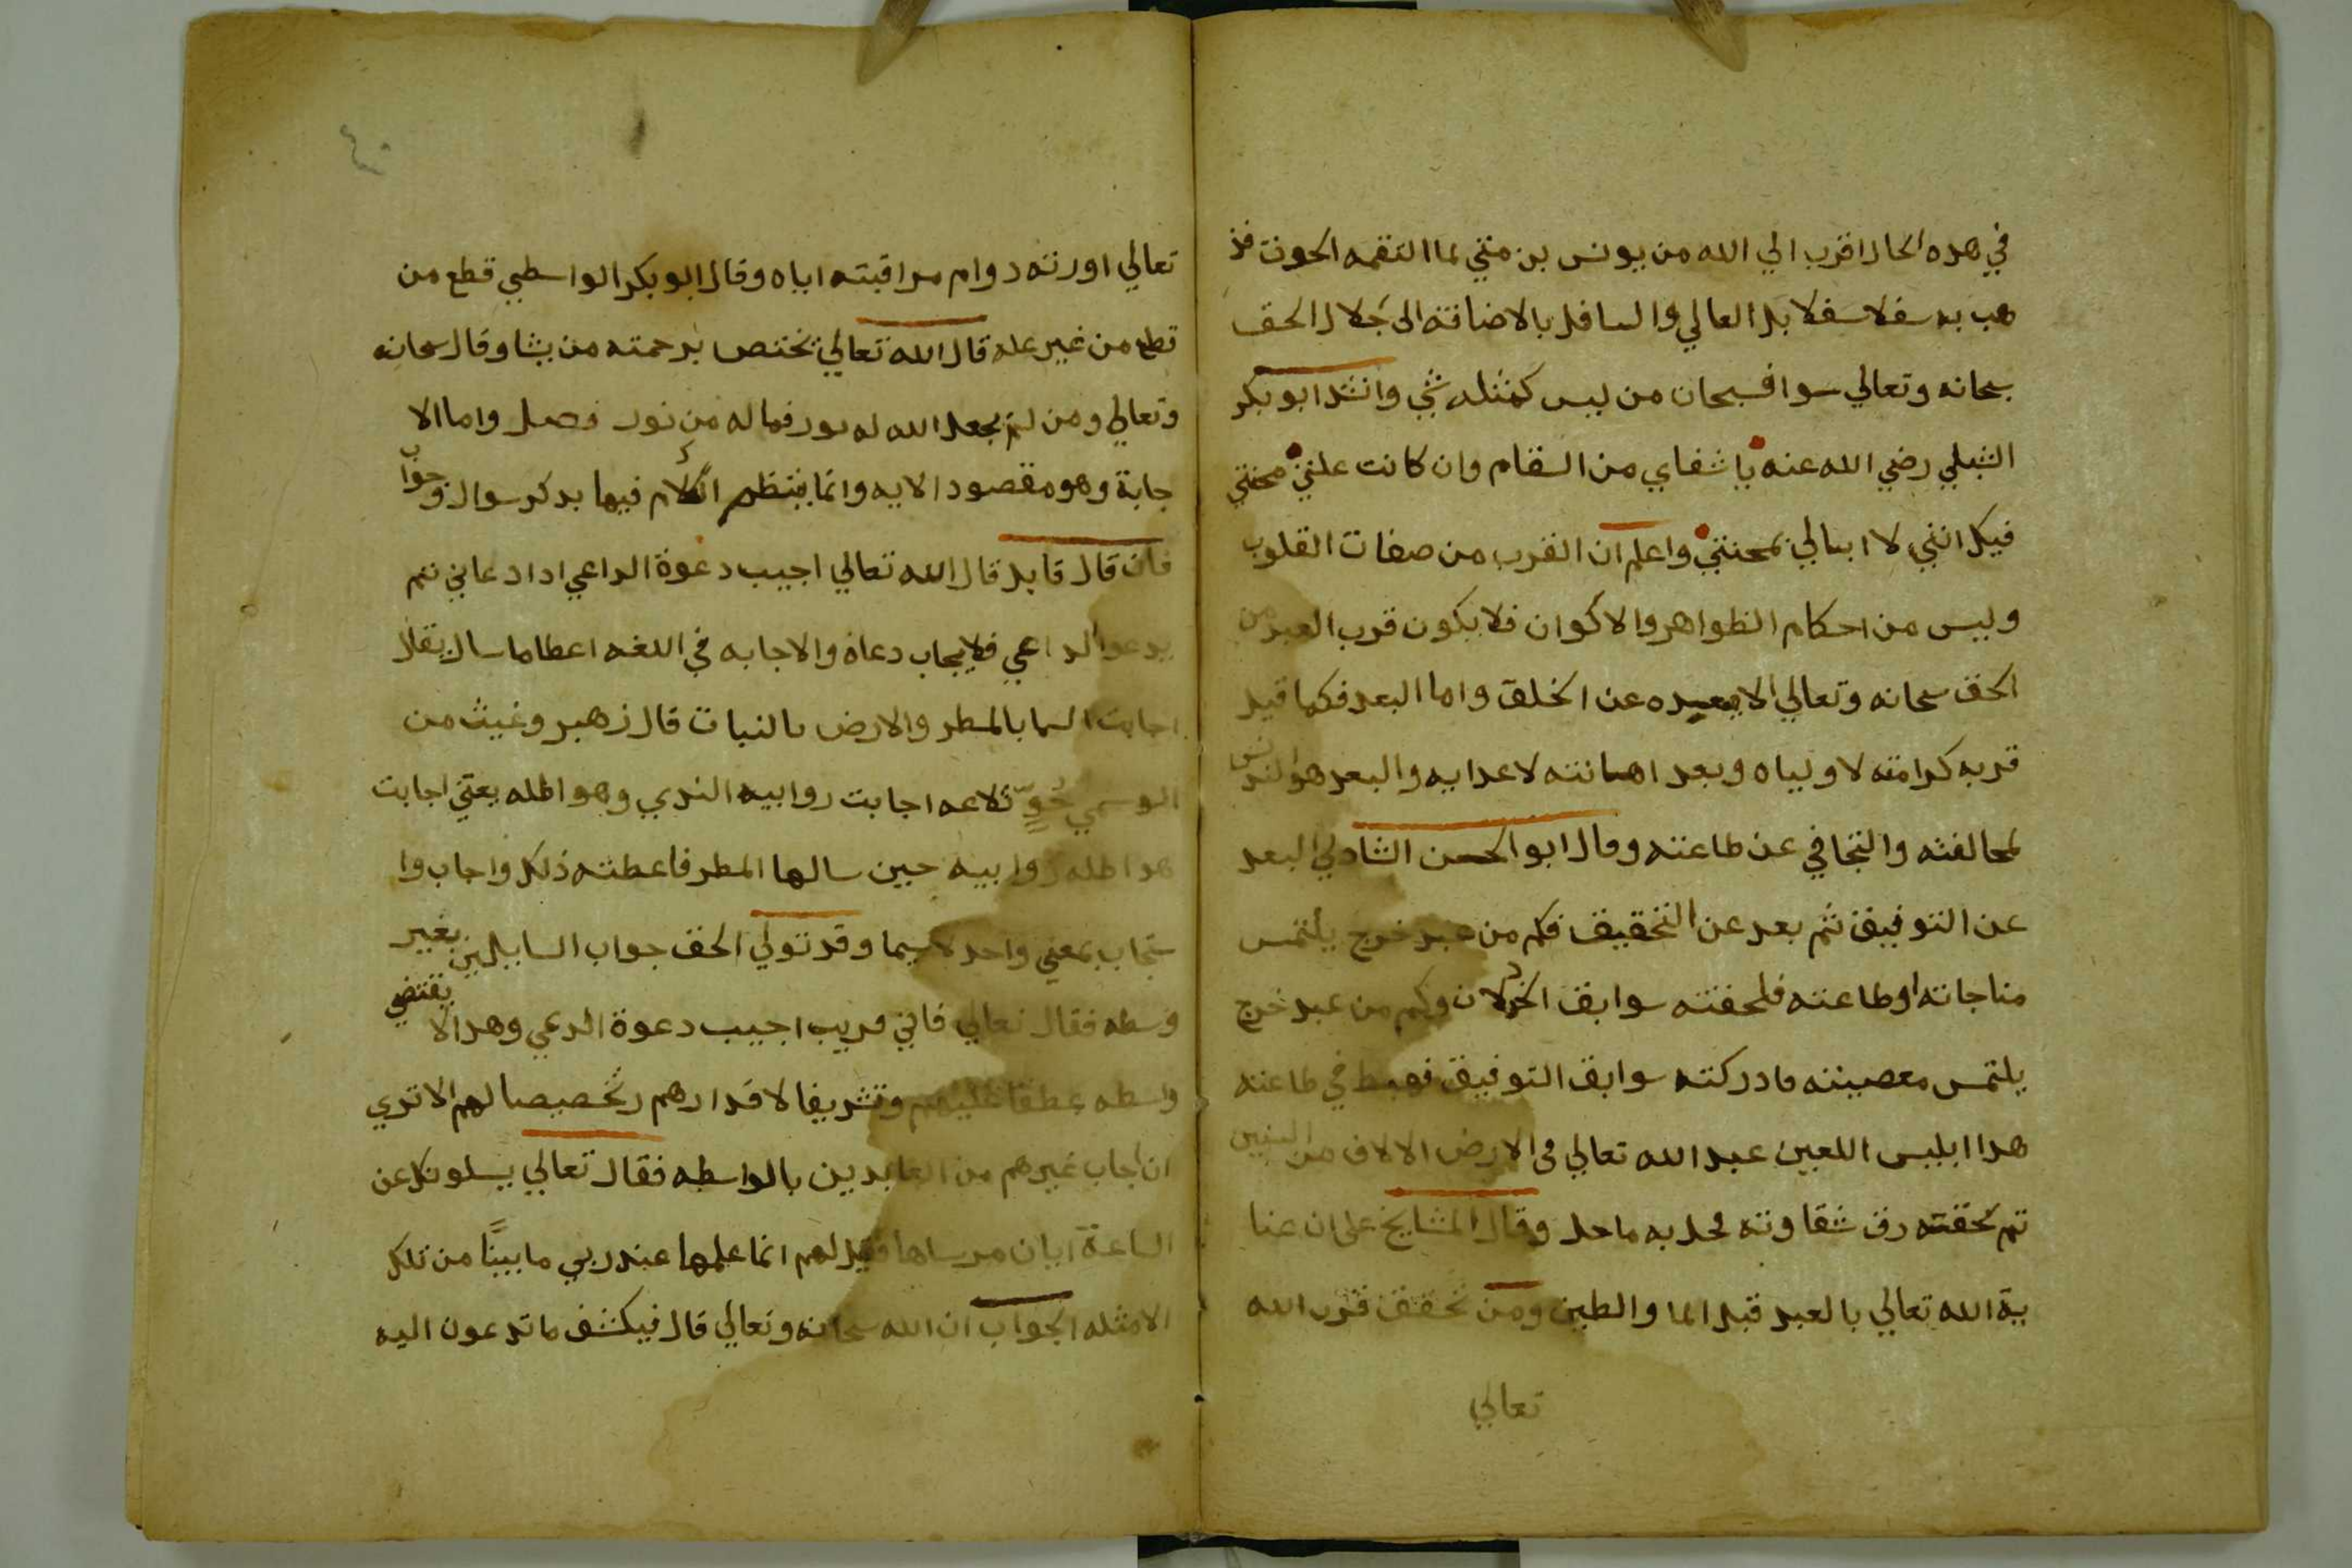 في هده الحال اقرب الي الله من يونس بن متي لما التقمه الحوت فذ
هب به سفلا سفلا بل العالي والسافل بالاضافة الى جلال الحق
سحانه وتعالي سوا فسبحان من ليس كمثله شي وانشد ابو بكر
الشبلي رضي الله عنه يا شفاي من السقام وان كانت علتي محنتي
فيك انني لا ابالي بمحنتي واعلم ان القرب من صفات القلوب
وليس من احكام الظواهر والاكوان فلا يكون قرب العبد من
الحق سحانه وتعالي الا ببعده عن الخلق واما البعد فكما قيل
قربه كرامته لاولياه وبعد اهانته لاعدايه والبعد هو التدنس
لمخالفته والتجافي عن طاعته وقال ابو الحسن الشادلي البعد
عن التوفيق ثم بعد عن التحقيق فكم من عبد خرج يلتمس
مناجاته او طاعته فلحقته سوابق الخذلان وكم من عبد خرج
يلتمس معصيته فادركته سوابق التوفيق فهبط في طاعته
هدا ابليس اللعين عبد الله تعالي في الارض الالاف من السنين
تم لحقته رق شقاوته فحل به ما حل وقال المشايخ على ان عنا
ية الله تعالي بالعبد قبل الما والطين ومن تحقق قرب الله
تعالي
٤٠
تعالي اورثه دوام مراقبته اياه وقال ابو بكر الواسطي قطع من
قطع من غير عله قال الله تعالي يختص برحمته من يشا وقال سحانه
وتعالي ومن لم يجعل الله له نور فما له من نور فصل واما الا
جابة وهو مقصود الايه وانما ينتظم الكلام فيها بدكر سوال وجواب
فان قال قايل قال الله تعالي اجيب دعوة الداعي ادا دعاني تم
يدعوا الداعي فلا يجاب دعاه والاجابه في اللغه اعطا ما سال يقال
اجابت السما بالمطر والارض بالنبات قال زهير وغيث من
الوسمي حُوٍّ تلاعه اجابت روابيه الندي وهو اطله يعني اجابت
هدا طله روابيه حين سالها المطر فاعطته ذلك واجاب وا
ستجاب بمعني واحد لا سيما وقد تولي الحق جواب السايلين بغير
وسطه فقال تعالي فاني قريب اجيب دعوة الدعي وهدا لا يقتضي
واسطه عطفا عليهم وتشريفا لاقدارهم وتخصيصا لهم الا تري
ان اجاب غيرهم من العابدين بالواسطه فقال تعالي يسلونك عن
الساعة ايان مرساها فقيل لهم انما علمها عند ربي ما بينًا من تلك
الامثله الجواب ان الله سحانه وتعالي قال فيكشف ما تدعون اليه